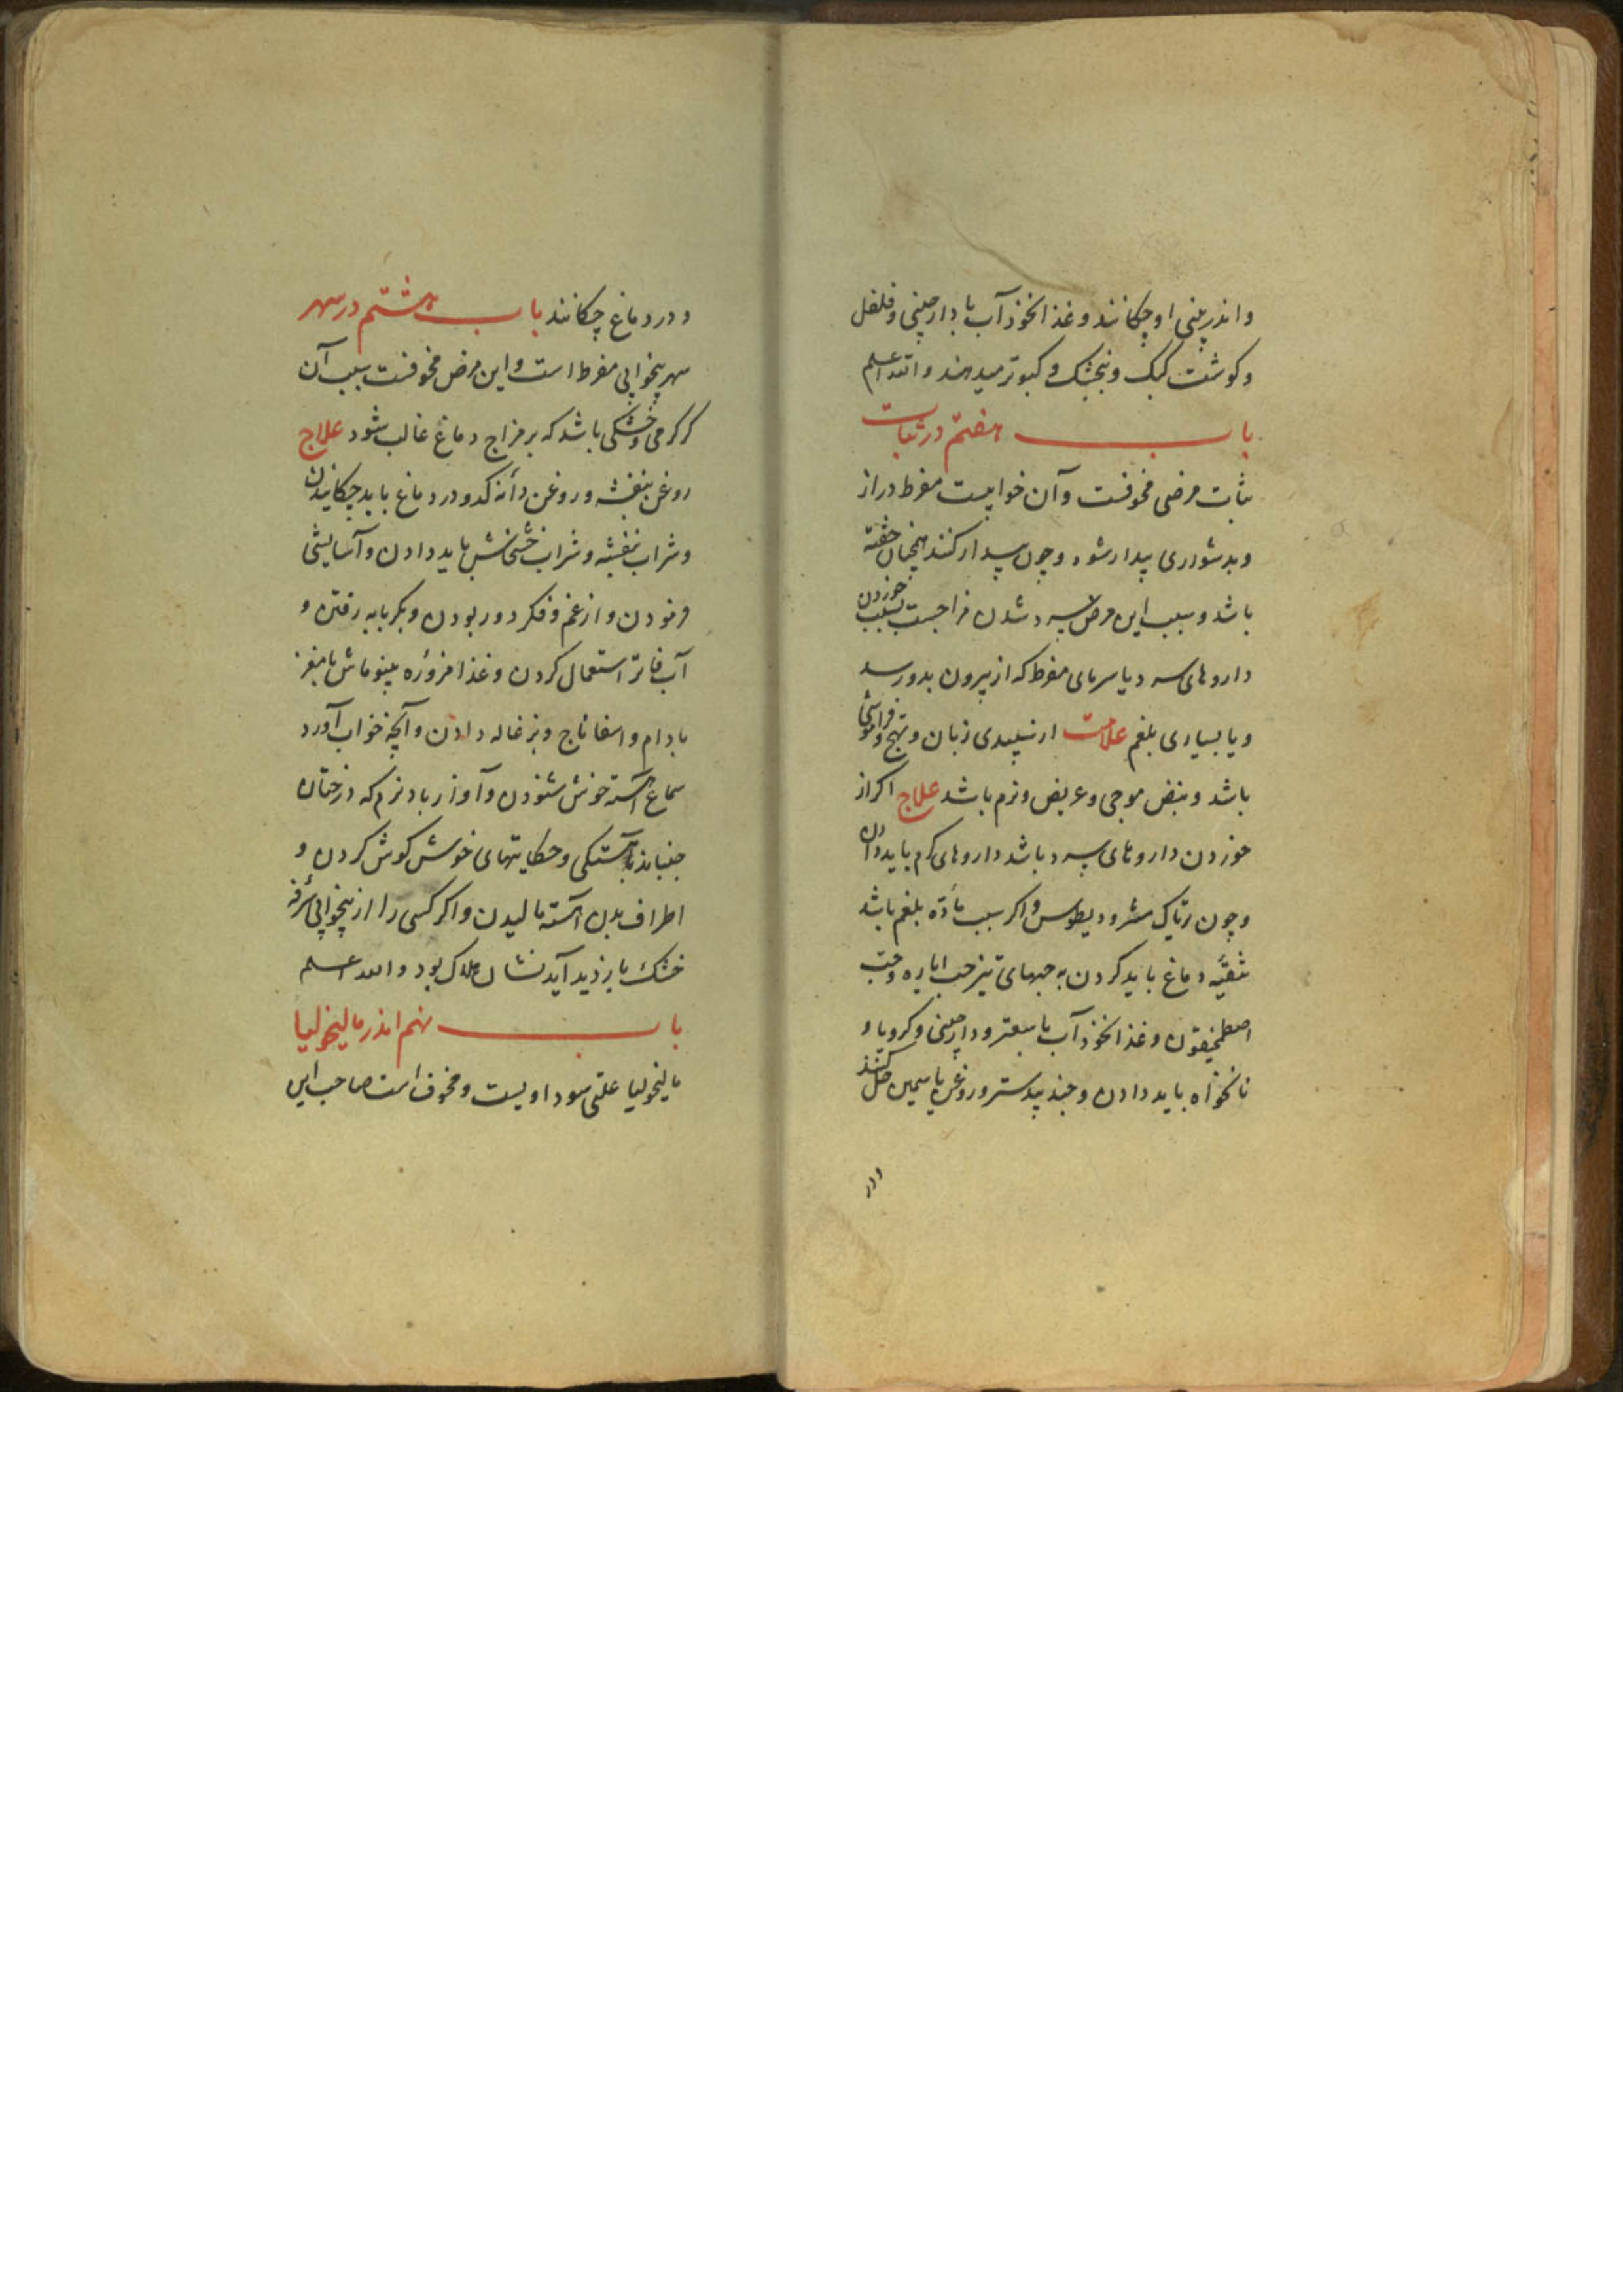 واندر بینی او چکانند و غذا نخود آب با دارچینی و فلفل
و کوشت کبک و بنجشک و کبوتر میدهند والله اعلم
باب هفتم در ثبات
ثبات مرضی مخوفست و آن خوابیست مفرط دراز
و بدشواری بیدار شود و چون بیدار کنند همچنان خفته
باشد و سبب این مرض سرد شدن مزاجست بسبب خوردن
داروهای سرد یا سرمای مفرط که از بیرون بدو رسد
و یا بسیاری بلغم علامت از سپیدی زبان و تهبج و فراموشی
باشد و نبض موجی و عریض و نرم باشد علاج اکر از
خوردن داروهای سرد باشد داروهای کرم باید دادن
و چون تریاک مثرودیطوس و اکر سبب مادّه بلغم باشد
تنقیّه دماغ باید کردن به حبهای تیز حب ایاره و حبّ
اصطمخیقون و غذا نخود آب با سعتر و دارچینی و کرویا و
نانخواه باید دادن و جند بیدستر و روغن یاسمین حل کنند
و در
و در دماغ چکانند باب هشتم در سهر
سهر بیخوابی مفرط است و این مرض مخوفست سبب آن
کرمی و خشکی باشد که بر مزاج دماغ غالب شود علاج
روغن بنفشه و روغن دانه کدو در دماغ باید چکانیدن
و شراب بنفشه و شراب خشخاش باید دادن و آسایشی
فرمودن و از غم و فکر دور بودن و بکرمابه رفتن و
آب فاتر استعمال کردن و غذا مزوّره بینو ماش با مغز
بادام و اسفاناج و بزغاله دادن و آنچه خواب آورد
سماع آهسته خوش شنودن و آواز باد نرم که درختان
جنباند بآهستکی و حکایتهای خوش کوش کردن و
اطراف بدن آهسته مالیدن و اکر کسی را از بیخوابی سرفه
خشک بازدید آید نشان هلاک بود والله اعلم
باب نهم اندر مالیخولیا
مالیخولیا علتی سوداویست و مخوف است صاحب این